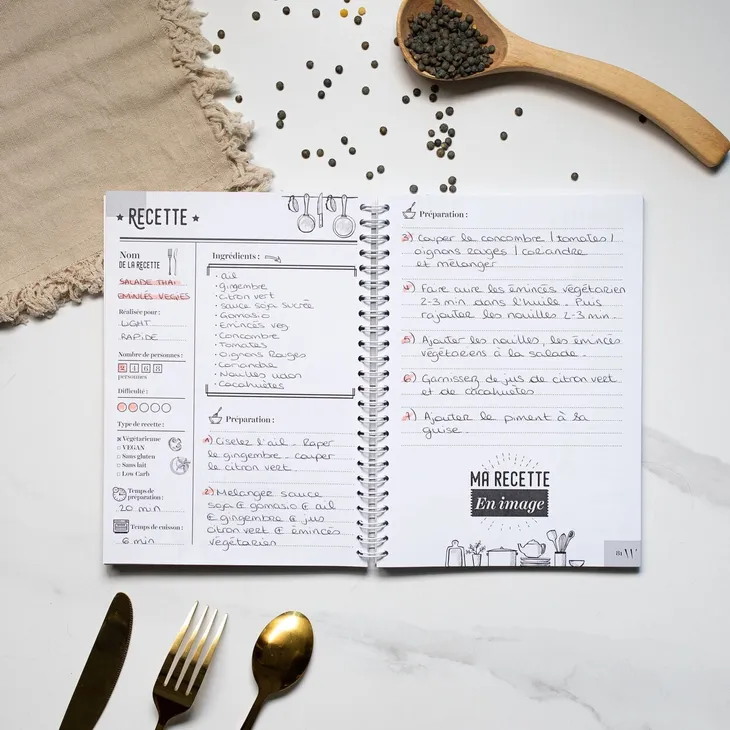 ★ RECETTE ★
Nom
DE LA RECETTE
SALADE THAI
EMINCÉS VEGÉS
Réalisée pour :
LIGHT
RAPIDE
Nombre de personnes :
2 4 6 8
personnes
Difficulté :
Type de recette :
Végétarienne
VEGAN
Sans gluten
Sans lait
Low Carb
Temps de
préparation :
20 min
Temps de cuisson :
6 min
Ingrédients :
• ail
• gingembre
• citron vert
• sauce soja sucrée
• Gomasio
• Emincés veg
• Concombre
• Tomates
• Oignons Rouges
• Coriandre
• Nouilles udon
• Cacahuètes
Préparation :
1) Ciselez l'ail. Raper
le gingembre. couper
le citron vert.
2) Melangez sauce
soja & gomasio & ail
& gingembre & jus
citron vert & émincés
végétarien
Préparation :
3) Couper le concombre / tomates /
oignons rouges / coriandre
et mélanger
4) Faire cuire les émincés végétarien
2-3 min dans l'huile. Puis
rajouter les nouilles 2-3 min.
5) Ajouter les nouilles, les émincés
végétariens à la salade.
6) Garnissez de jus de citron vert
et de cacahuètes.
7) Ajouter le piment à sa
guise.
MA RECETTE
En image